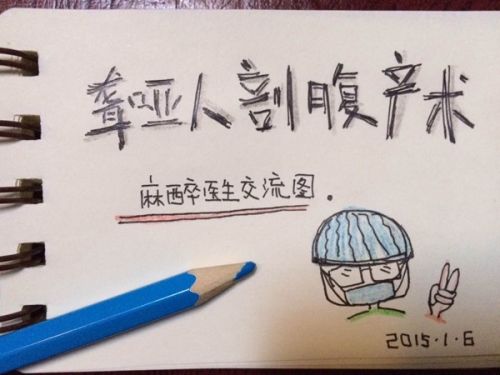 聋哑人剖腹产术
麻醉医生交流图。
2015.1.6